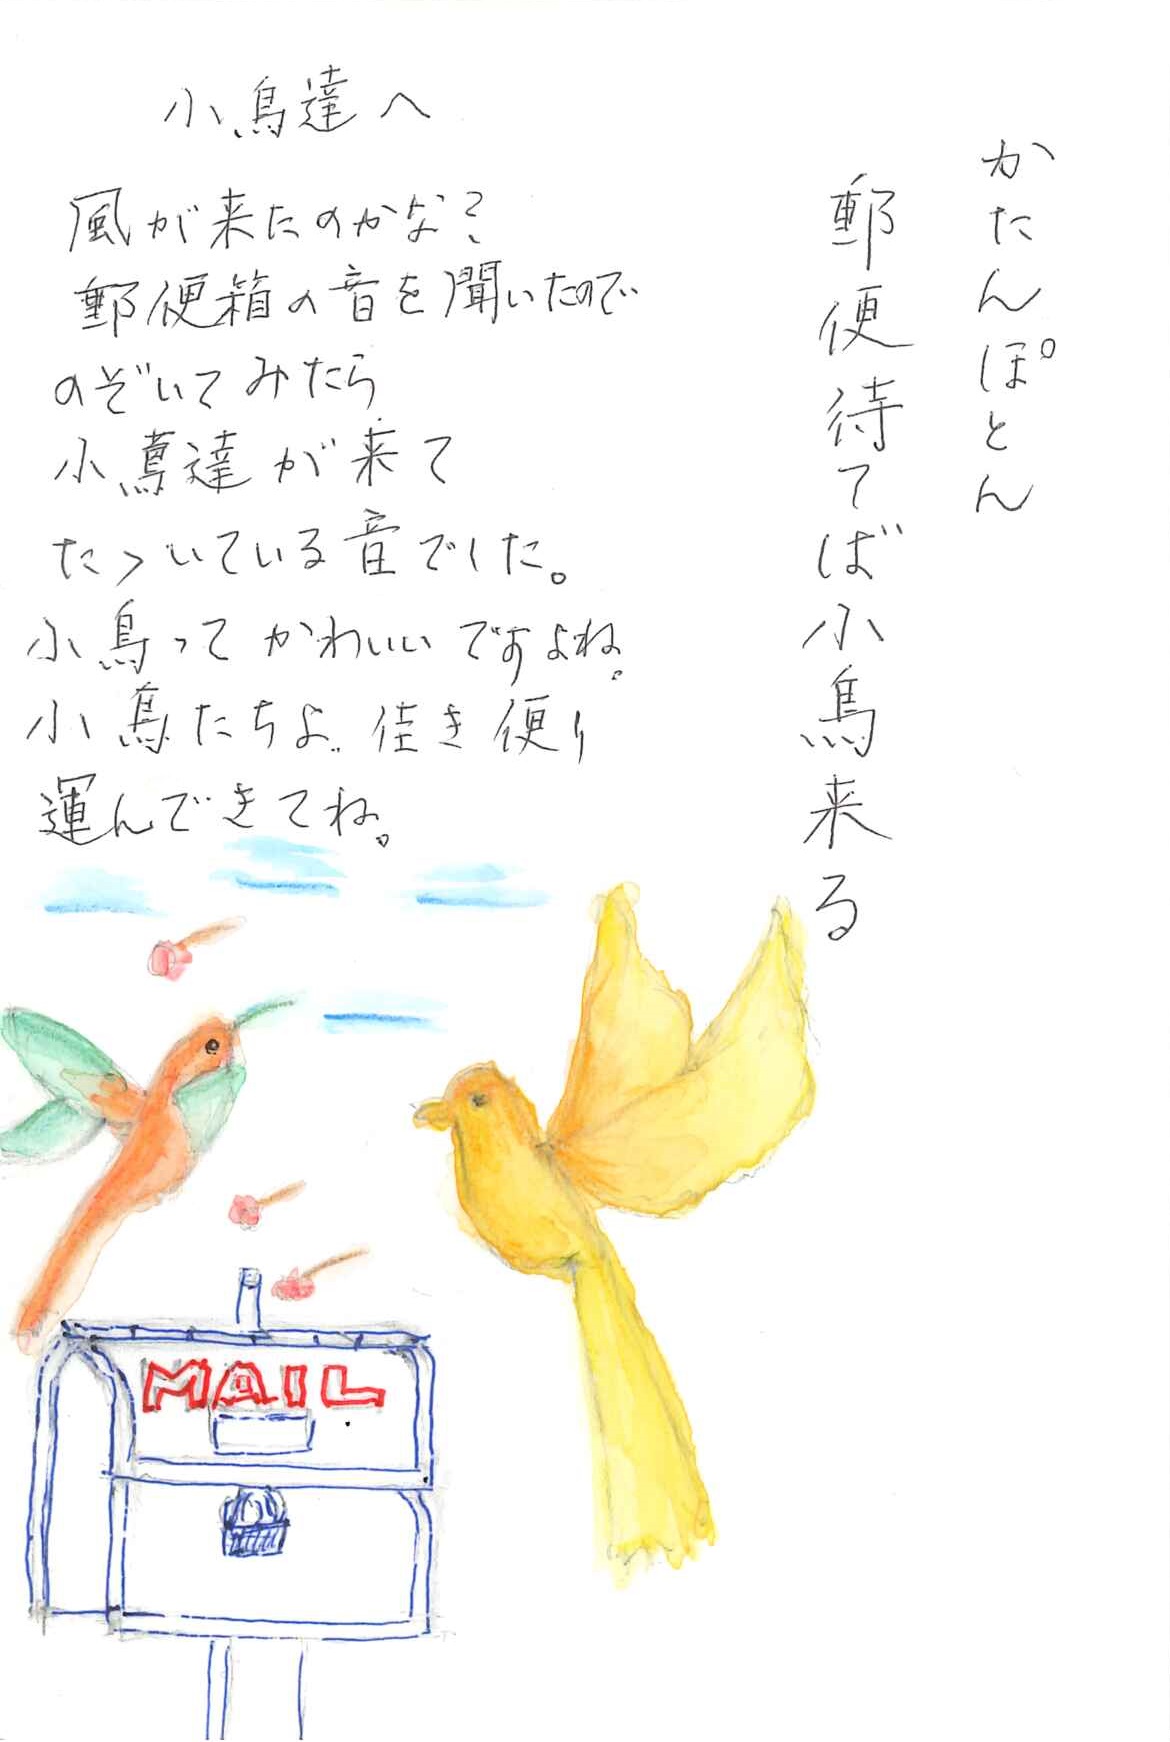 かたんぽとん
郵便待てば小鳥来る
小鳥達へ
風が来たのかな?
郵便箱の音を聞いたので
のぞいてみたら
小鳥達が来て
たついている音でした。
小鳥ってかわいいですよね。
小鳥たちよ。佳き便り
運んできてね。
MAIL